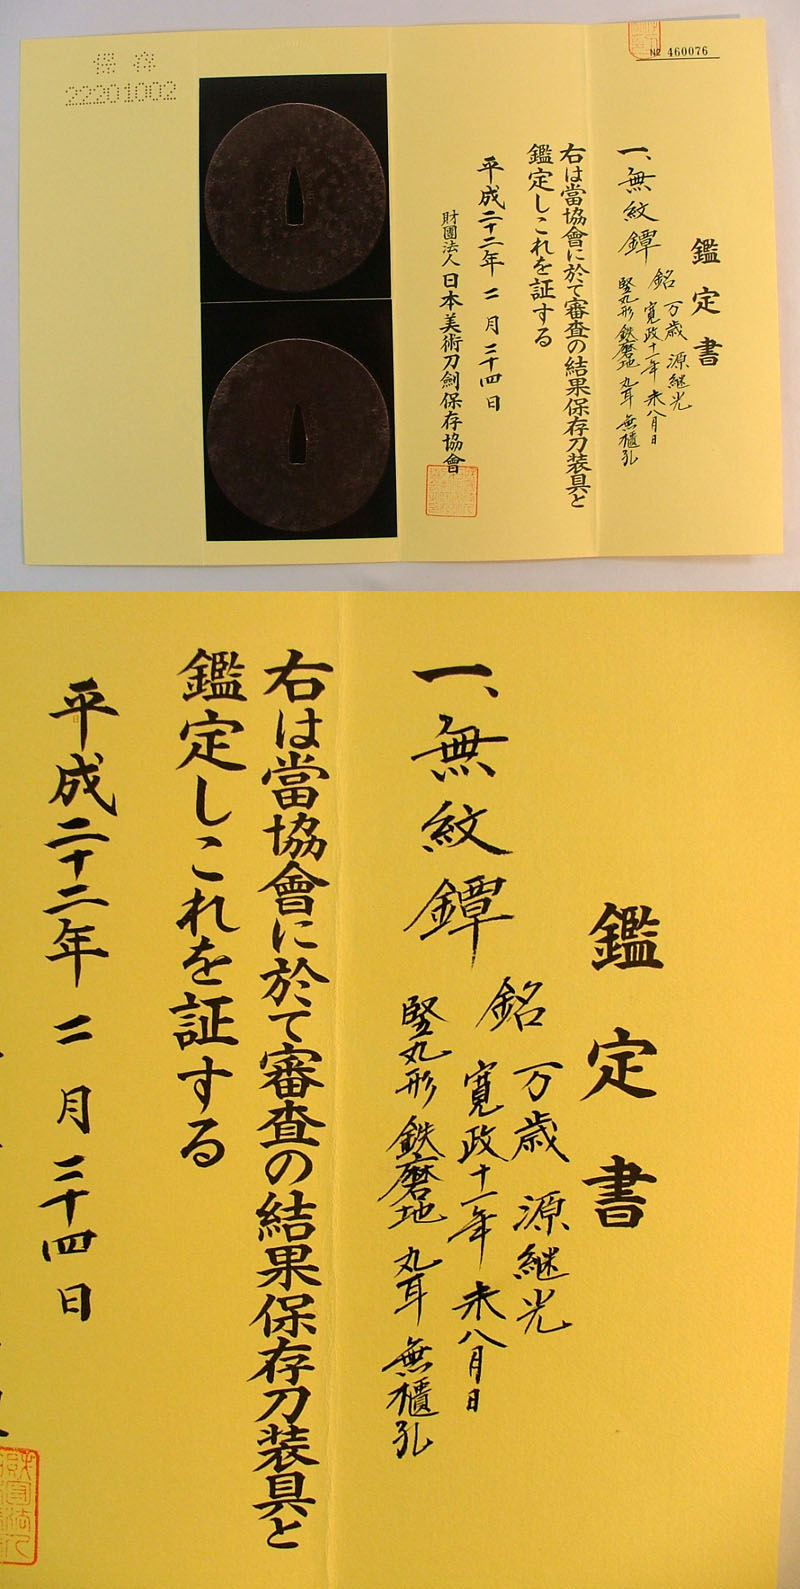 保存
22201002
№ 460076
鑑定書
一、無紋鐔
銘 万歳 源継光
寛政十一年 未八月日
竪丸形 鉄磨地 丸耳 無櫃孔
右は當協會に於て審査の結果保存刀装具と
鑑定しこれを証する
平成二十二年 二月二十四日
財團法人 日本美術刀劍保存協會
鑑定書
一、無紋鐔
銘 万歳 源継光
寛政十一年 未八月日
竪丸形 鉄磨地 丸耳 無櫃孔
右は當協會に於て審査の結果保存刀装具と
鑑定しこれを証する
平成二十二年 二月二十四日
財團法人